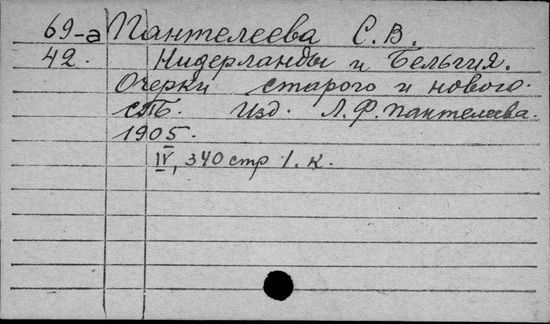 69-а Пантелеева С.В.
42. Нидерланды и Бельгия.
Очерки старого и нового.
СПБ. Изд. Л.Ф. Пантелеева.
1905.
IV, 340 стр 1. к.